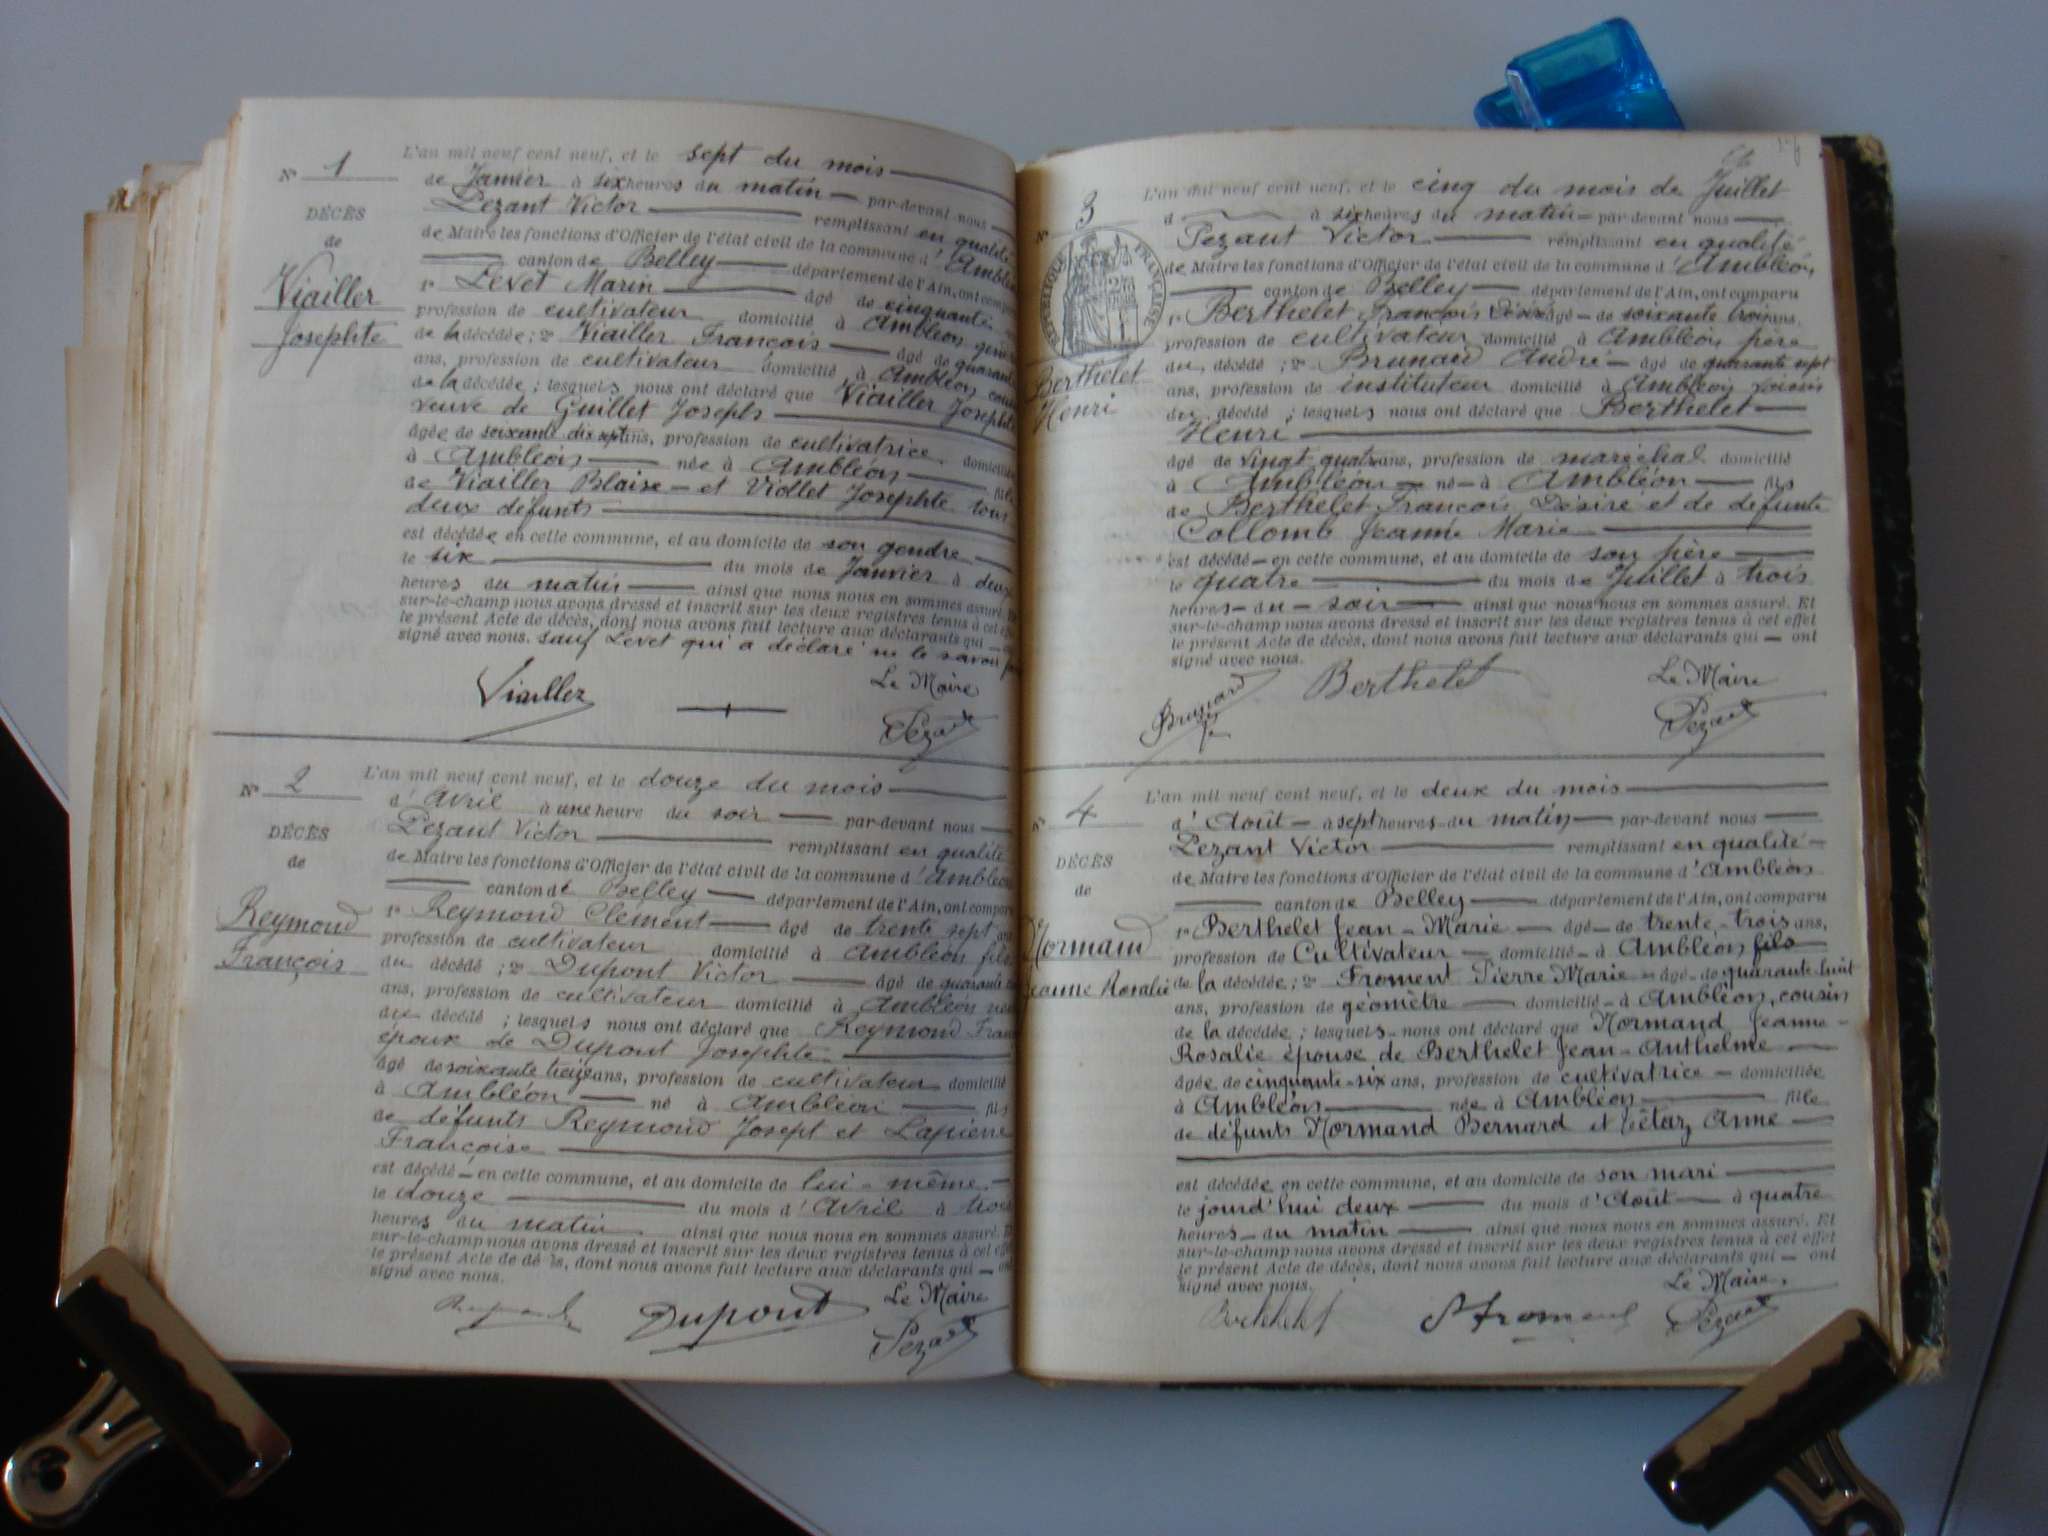 N° 1
DÉCÈS
de
Viailler
Josephte
L'an mil neuf cent neuf, et le sept du mois
de Janvier à six heures du matin par-devant nous
Pezant Victor remplissant en qualité
de Maire les fonctions d'Officier de l'état civil de la commune d'Ambléon
canton de Belley département de l'Ain, ont comparu
1° Levet Marin âgé de cinquante
profession de cultivateur domicilié à Ambléon gendre
de la décédée ; 2° Viailler François âgé de quarante
ans, profession de cultivateur domicilié à Ambléon
de la décédée ; lesquels nous ont déclaré que Viailler Josephte
veuve de Guillet Joseph
âgée de soixante dix sept ans, profession de cultivatrice domiciliée
à Ambléon née à Ambléon fille
de Viailler Blaise et Viollet Josephte tous
deux défunts
est décédée en cette commune, et au domicile de son gendre
le six du mois de Janvier à deux
heures du matin ainsi que nous nous en sommes assuré. Et
sur-le-champ nous avons dressé et inscrit sur les deux registres tenus à cet effet
le présent Acte de décès, dont nous avons fait lecture aux déclarants qui ont
signé avec nous. sauf Levet qui a déclaré ne le savoir
Le Maire
Viailler Pezant
N° 2
DÉCÈS
de
Reymond
François
L'an mil neuf cent neuf, et le douze du mois
d'Avril à une heure du soir par-devant nous
Pezant Victor remplissant en qualité
de Maire les fonctions d'Officier de l'état civil de la commune d'Ambléon
canton de Belley département de l'Ain, ont comparu
1° Reymond Clément âgé de trente sept ans
profession de cultivateur domicilié à Ambléon fils
du décédé ; 2° Dupont Victor âgé de quarante
ans, profession de cultivateur domicilié à Ambléon
du décédé ; lesquels nous ont déclaré que Reymond François
époux de Dupont Josephte
âgé de soixante treize ans, profession de cultivateur domicilié
à Ambléon né à Ambléon fils
de défunts Reymond Josept et Lapierre
Françoise
est décédé en cette commune, et au domicile de lui-même
le douze du mois d'Avril à trois
heures du matin ainsi que nous nous en sommes assuré. Et
sur-le-champ nous avons dressé et inscrit sur les deux registres tenus à cet effet
le présent Acte de décès, dont nous avons fait lecture aux déclarants qui ont
signé avec nous.
Le Maire
Dupont Pezant
N° 3
RÉPUBLIQUE FRANÇAISE
Berthelet
Henri
L'an mil neuf cent neuf, et le cinq du mois de Juillet
d à six heures du matin par-devant nous
Pezant Victor remplissant en qualité
de Maire les fonctions d'Officier de l'état civil de la commune d'Ambléon
canton de Belley département de l'Ain, ont comparu
1° Berthelet François Désiré âgé de soixante trois ans,
profession de cultivateur domicilié à Ambléon père
du décédé ; 2° Brunard André âgé de quarante sept
ans, profession de instituteur domicilié à Ambléon voisin
du décédé ; lesquels nous ont déclaré que Berthelet
Henri
âgé de vingt quatre ans, profession de maréchal domicilié
à Ambléon né à Ambléon fils
de Berthelet François Désiré et de défunte
Collomb Jeanne Marie
est décédé en cette commune, et au domicile de son père
le quatre du mois de Juillet à trois
heures du soir ainsi que nous nous en sommes assuré. Et
sur-le-champ nous avons dressé et inscrit sur les deux registres tenus à cet effet
le présent Acte de décès, dont nous avons fait lecture aux déclarants qui ont
signé avec nous.
Le Maire
Brunard Berthelet Pezant
N° 4
DÉCÈS
de
Normand
Jeanne Rosalie
L'an mil neuf cent neuf, et le deux du mois
d'Août à sept heures du matin par-devant nous
Pezant Victor remplissant en qualité
de Maire les fonctions d'Officier de l'état civil de la commune d'Ambléon
canton de Belley département de l'Ain, ont comparu
1° Berthelet Jean-Marie âgé de trente-trois ans,
profession de Cultivateur domicilié à Ambléon fils
de la décédée ; 2° Froment Pierre Marie âgé de quarante huit
ans, profession de géomètre domicilié à Ambléon, cousin
de la décédée ; lesquels nous ont déclaré que Normand Jeanne-
Rosalie épouse de Berthelet Jean-Anthelme
âgée de cinquante-six ans, profession de cultivatrice domiciliée
à Ambléon née à Ambléon fille
de défunts Normand Bernard et Tétaz Anne
est décédée en cette commune, et au domicile de son mari
le jourd'hui deux du mois d'Août à quatre
heures du matin ainsi que nous nous en sommes assuré. Et
sur-le-champ nous avons dressé et inscrit sur les deux registres tenus à cet effet
le présent Acte de décès, dont nous avons fait lecture aux déclarants qui ont
signé avec nous.
Le Maire.
Berthelet Froment Pezant